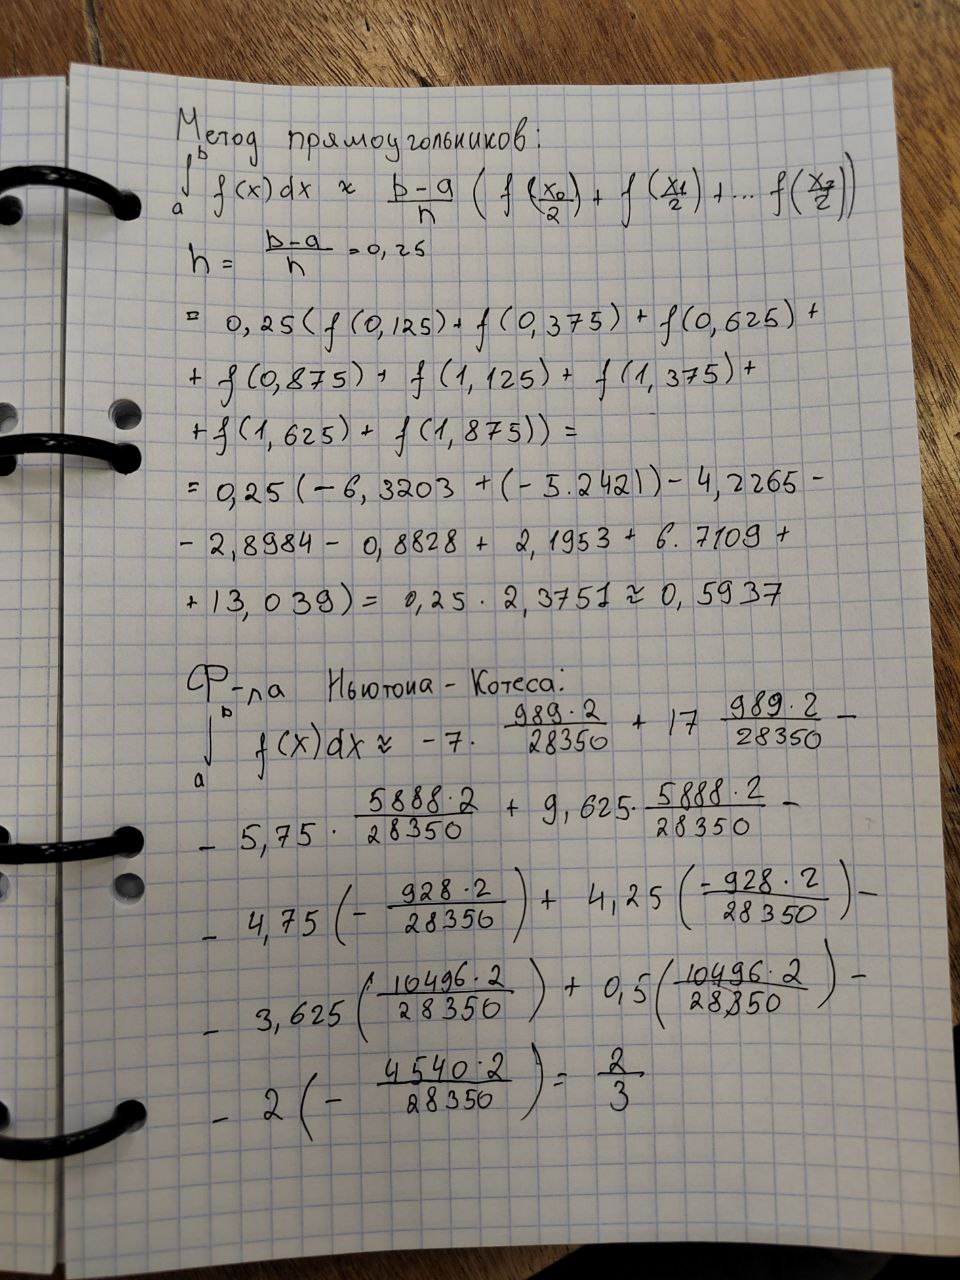 Метод прямоугольников:
∫_a^b f(x)dx ≈ \frac{b-a}{n} (f(\frac{x_0}{2}) + f(\frac{x_1}{2}) + ... f(\frac{x_7}{2}))
h = \frac{b-a}{n} = 0,25
= 0,25(f(0,125) + f(0,375) + f(0,625) +
+ f(0,875) + f(1,125) + f(1,375) +
+ f(1,625) + f(1,875)) =
= 0,25(-6,3203 + (-5.2421) - 4,2265 -
- 2,8984 - 0,8828 + 2,1953 + 6.7109 +
+ 13,039) = 0,25 · 2,3751 ≈ 0,5937
Ф-ла Ньютона - Котеса:
∫_a^b f(x)dx ≈ -7 · \frac{989·2}{28350} + 17 \frac{989·2}{28350} -
- 5,75 · \frac{5888·2}{28350} + 9,625 · \frac{5888·2}{28350} -
- 4,75 (-\frac{928·2}{28350}) + 4,25 (\frac{-928·2}{28350}) -
- 3,625 (\frac{10496·2}{28350}) + 0,5 (\frac{10496·2}{28350}) -
- 2 (-\frac{4540·2}{28350}) = \frac{2}{3}